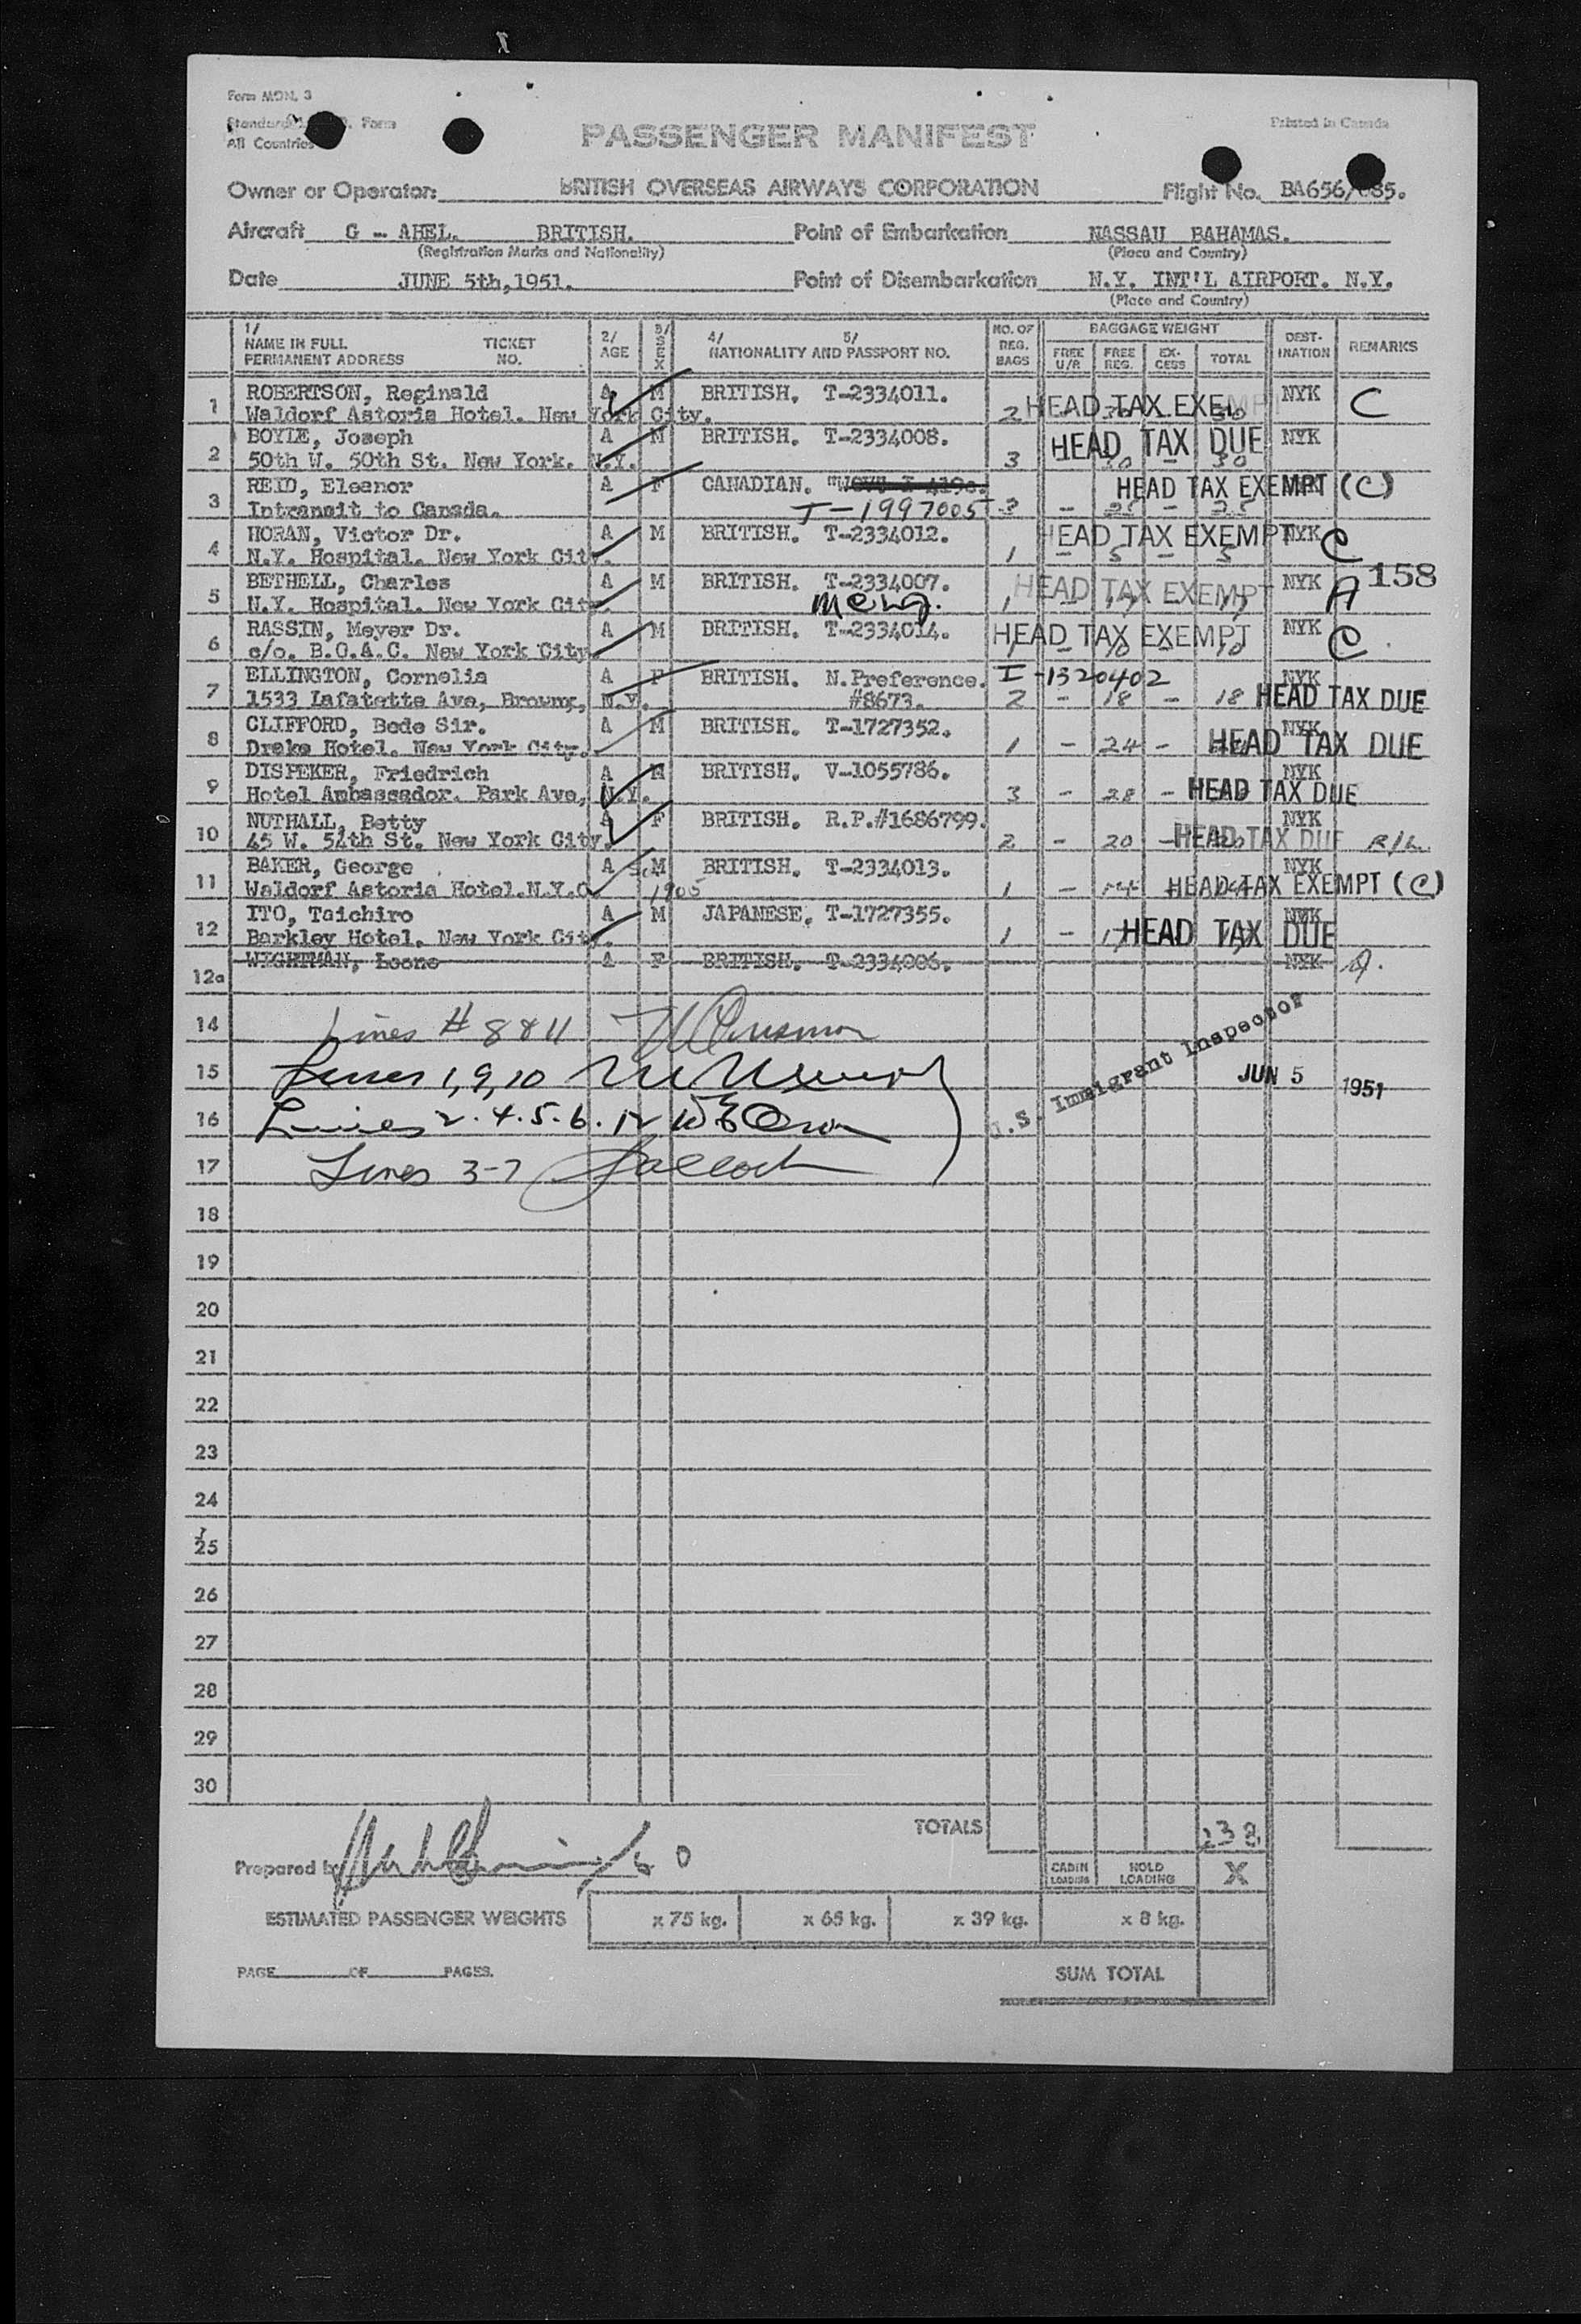 Form MON. 3
Standard Form
All Countries
PASSENGER MANIFEST
Printed in Canada
Owner or Operator: BRITISH OVERSEAS AIRWAYS CORPORATION Flight No. BA656/ 85.
Aircraft G - AHEL. BRITISH. Point of Embarkation NASSAU BAHAMAS.
(Registration Marks and Nationality) (Place and Country)
Date JUNE 5th,1951. Point of Disembarkation N.Y. INT'L AIRPORT. N.Y.
(Place and Country)
1/ NAME IN FULL PERMANENT ADDRESS TICKET NO. 2/ AGE 3/ SEX 4/ 5/ NATIONALITY AND PASSPORT NO. NO. OF REG. BAGS BAGGAGE WEIGHT FREE U/R FREE REG. EX-CESS TOTAL DEST-INATION REMARKS
1 ROBERTSON, Reginald A M BRITISH. T-2334011. NYK C
Waldorf Astoria Hotel. New York City. 2 HEAD TAX EXEMPT
2 BOYLE, Joseph A M BRITISH. T-2334008. HEAD TAX DUE NYK
50th W. 50th St. New York. N.Y. 3 30 - 30
3 REID, Eleanor A F CANADIAN. HEAD TAX EXEMPT (C)
Intransit to Canada. T-1997005 3 -
4 HORAN, Victor Dr. A M BRITISH. T-2334012. HEAD TAX EXEMPT NYK C
N.Y. Hospital. New York City. 1 - 5 - 5
5 BETHELL, Charles A M BRITISH. T-2334007. HEAD TAX EXEMPT NYK A 158
N.Y. Hospital. New York City. 1
6 RASSIN, Meyer Dr. A M BRITISH. T-2334014. HEAD TAX EXEMPT NYK C
c/o. B.O.A.C. New York City
7 ELLINGTON, Cornelia A F BRITISH. N.Preference. I-1320402 NYK
1533 Lafatette Ave, Brownx, N.Y. #8673. 2 - 18 - 18 HEAD TAX DUE
8 CLIFFORD, Bede Sir. A M BRITISH. T-1727352. NYK
Drake Hotel. New York City. 1 - 24 - HEAD TAX DUE
9 DISPEKER, Friedrich A M BRITISH. V-1055786. NYK
Hotel Ambassador. Park Ave, N.Y. 3 - 28 - HEAD TAX DUE
10 NUTHALL, Betty A F BRITISH. R.P.#1686799. NYK
45 W. 54th St. New York City. 2 - 20 - HEAD TAX DUE
11 BAKER, George A M BRITISH. T-2334013. NYK
Waldorf Astoria Hotel.N.Y.C 1905 1 - 14 HEAD TAX EXEMPT (C)
12 ITO, Taichiro A M JAPANESE. T-1727355. NYK
Barkley Hotel. New York City. 1 - 17 HEAD TAX DUE
12a WIGHTMAN, Leone A F BRITISH. T-2334006. NYK
14 Lines # 8 & 11
15 Lines 1,9,10 JUN 5 1951
U.S. Immigrant Inspector
16 Lines 2.4.5.6.12
17 Lines 3-7
18
19
20
21
22
23
24
25
26
27
28
29
30
TOTALS 238
Prepared by CABIN LOADING HOLD LOADING X
ESTIMATED PASSENGER WEIGHTS x 75 kg. x 65 kg. x 39 kg. x 8 kg.
PAGE OF PAGES. SUM TOTAL